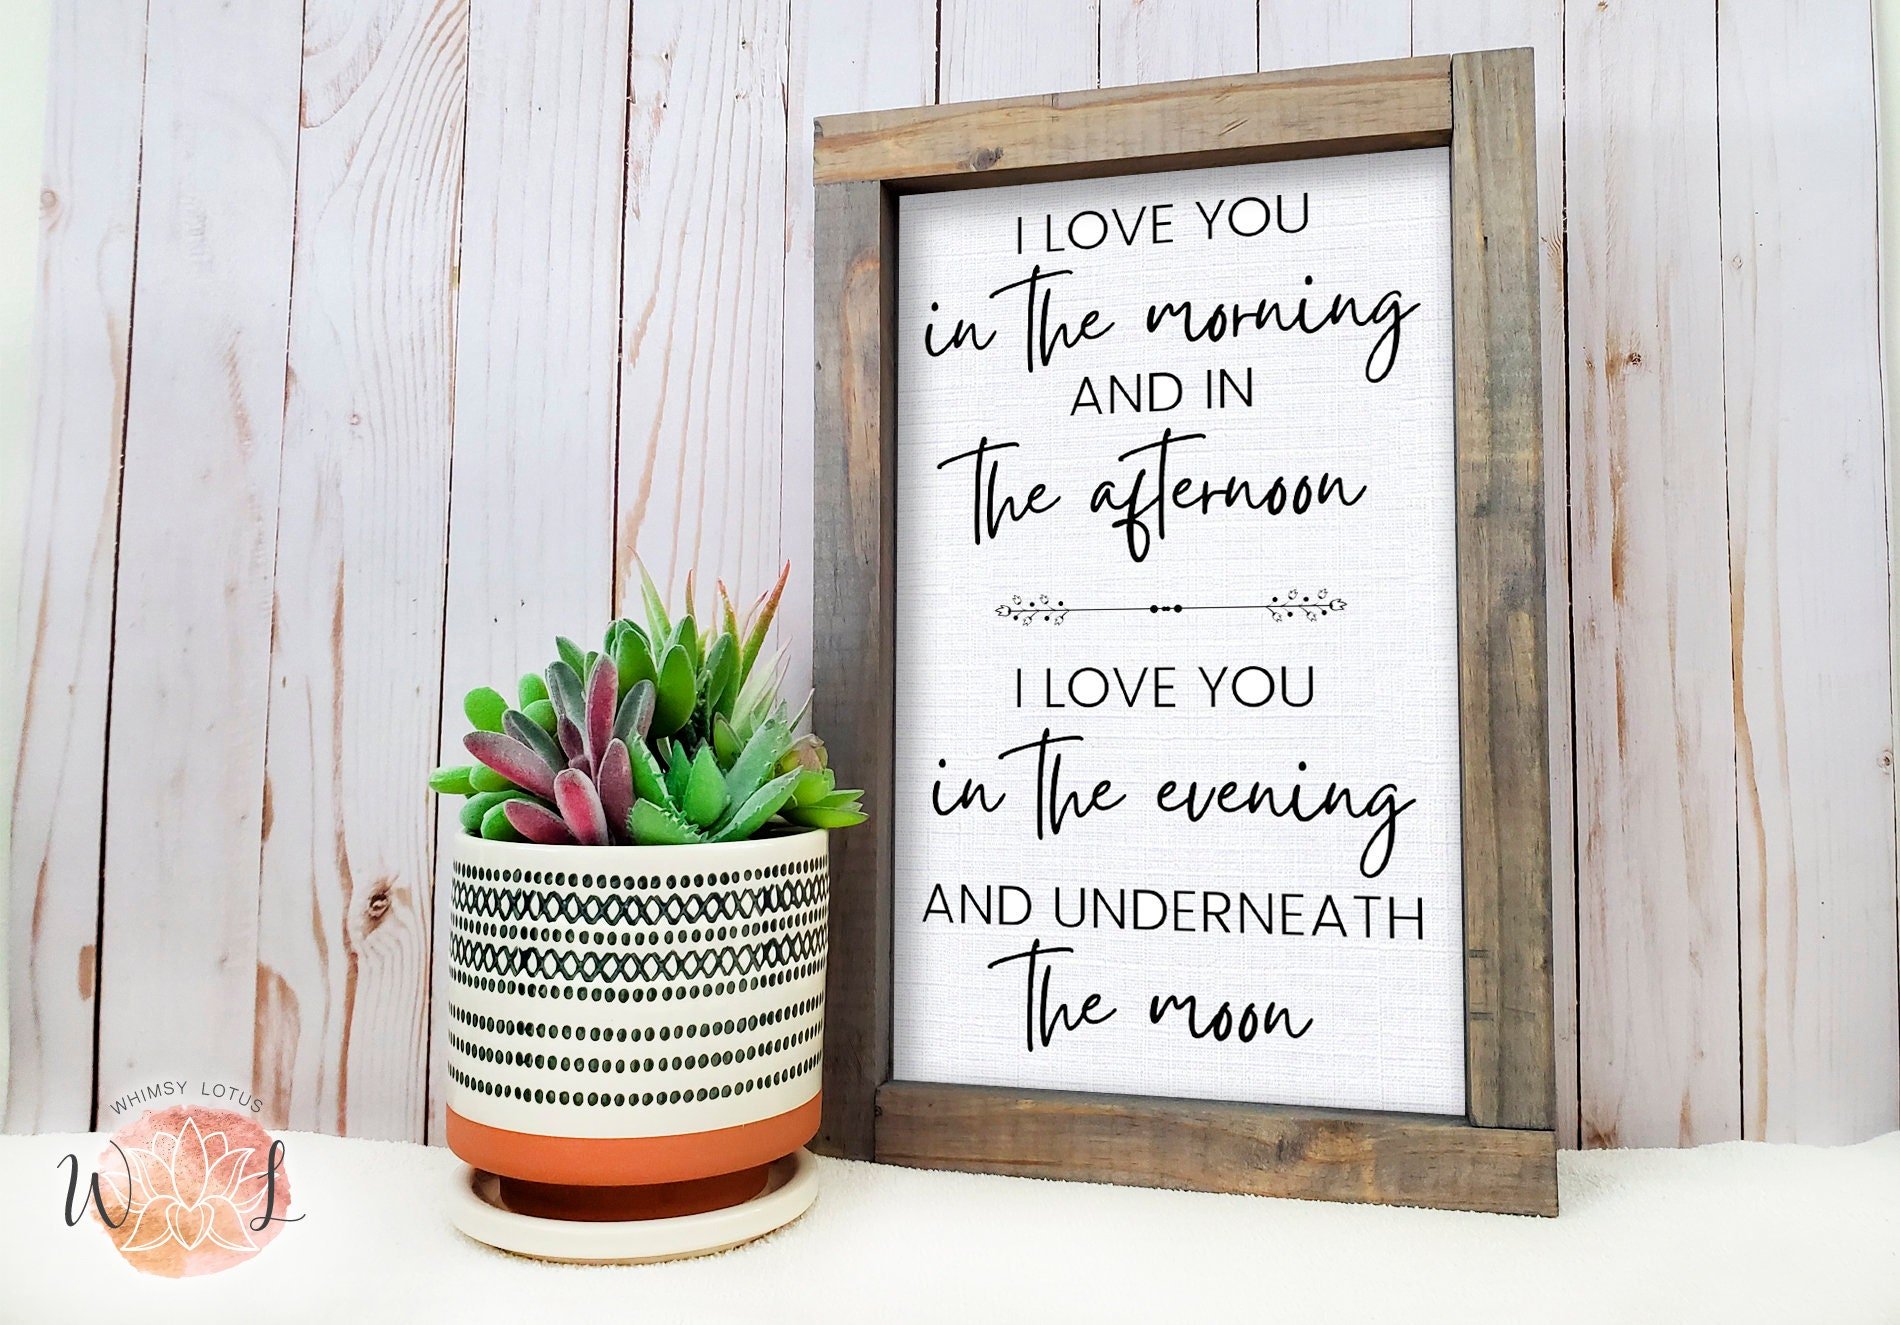 I LOVE YOU
in the morning
AND IN
the afternoon
I LOVE YOU
in the evening
AND UNDERNEATH
the moon
WHIMSY LOTUS
W L